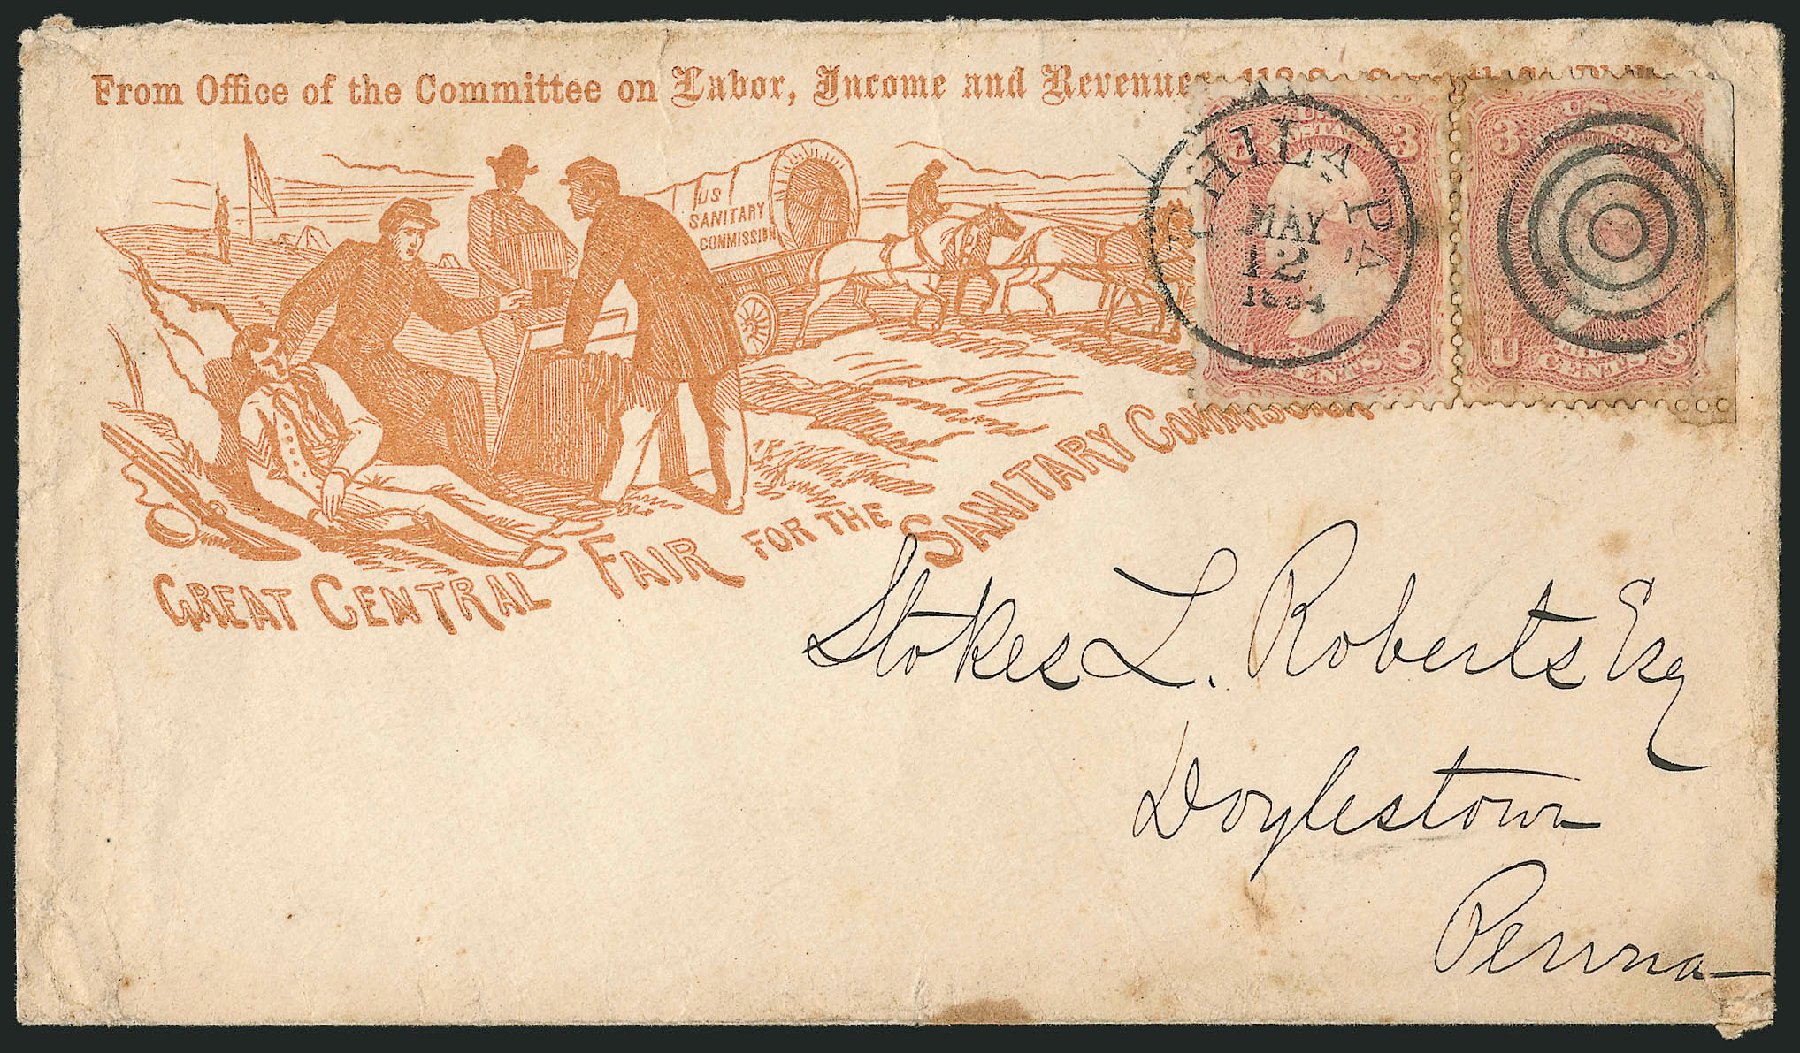 From Office of the Committee on Labor, Income and Revenue,
US
SANITARY
COMMISSION
GREAT CENTRAL FAIR FOR THE SANITARY COMMISSION
PHILA. PA.
MAY
12
1864
U S
POSTAGE
3 3
U CENTS S
U S
3
U CENTS S
Stokes L. Roberts Esq
Doylestown
Penna